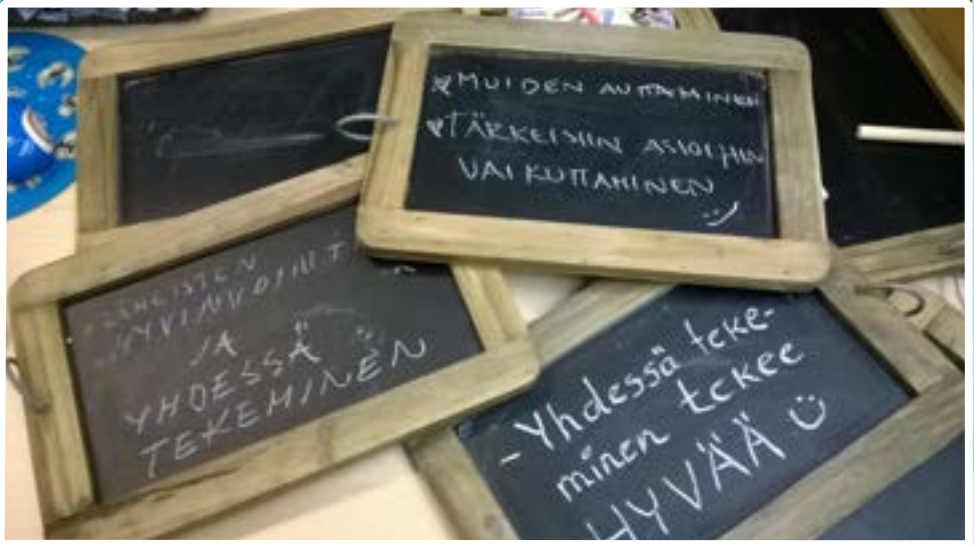 MUIDEN AUTTAMINEN
TÄRKEISIIN ASIOIHIN
VAIKUTTAMINEN
HYVINVOINTI
JA
YHDESSÄ
TEKEMINEN
- Yhdessä teke-
minen tekee
HYVÄÄ